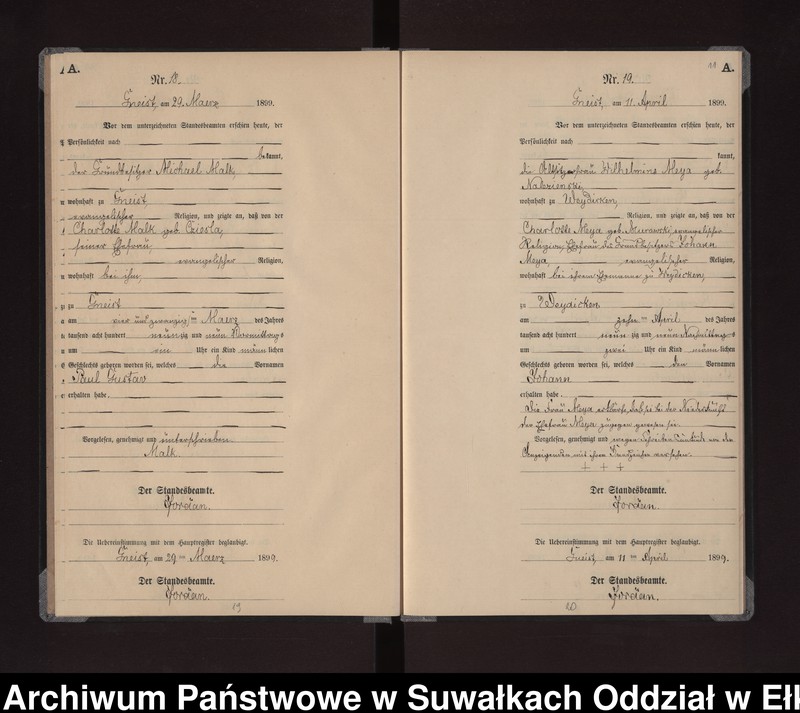 A.
Nr. 18.
Gneist, am 29. Maerz 1899.
Vor dem unterzeichneten Standesbeamten erschien heute, der
Persönlichkeit nach
bekannt,
der Grundbesitzer Michael Malk,
wohnhaft zu Gneist,
evangelischer Religion, und zeigte an, daß von der
Charlotte Malk geb.
seiner Ehefrau,
evangelischer Religion,
wohnhaft bei ihm,
zu Gneist
am vier und zwanzigsten Maerz des Jahres
tausend acht hundert neunzig und neun Vormittags
um Uhr ein Kind männlichen
Geschlechts geboren worden sei, welches die Vornamen
Paul Gustav
erhalten habe.
Vorgelesen, genehmigt und unterschrieben.
Malk.
Der Standesbeamte.
Jordan.
Die Uebereinstimmung mit dem Hauptregister beglaubigt.
Gneist, am 29ten Maerz 1899.
Der Standesbeamte.
Jordan.
19
A.
Nr. 19.
Gneist, am 11. April 1899.
Vor dem unterzeichneten Standesbeamten erschien heute, der
Persönlichkeit nach
kannt,
die Wilhelmine Meya geb.
wohnhaft zu Weydicken,
Religion, und zeigte an, daß von der
Charlotte Meya geb. Murawski, evangelischer
Religion, Ehefrau des Grundbesitzers Johann
Meya, evangelischer Religion,
wohnhaft bei ihrem Ehemanne zu Weydicken,
zu Weydicken
am zehnten April des Jahres
tausend acht hundert neunzig und neun Nachmittags
um zwei Uhr ein Kind männlichen
Geschlechts geboren worden sei, welches den Vornamen
Johann
erhalten habe.
Die Frau Meya erklärte, daß sie bei der Niederkunft
der Ehefrau Meya zugegen gewesen sei.
Vorgelesen, genehmigt und wegen von der
Anzeigenden mit ihrem Handzeichen versehen.
+ + +
Der Standesbeamte.
Jordan.
Die Uebereinstimmung mit dem Hauptregister beglaubigt.
Gneist, am 11ten April 1899.
Der Standesbeamte.
Jordan.
20
Archiwum Państwowe w Suwałkach Oddział w Ełk